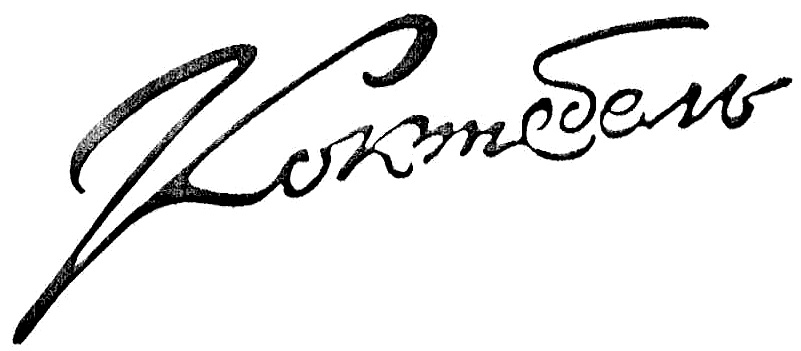 Коктебель